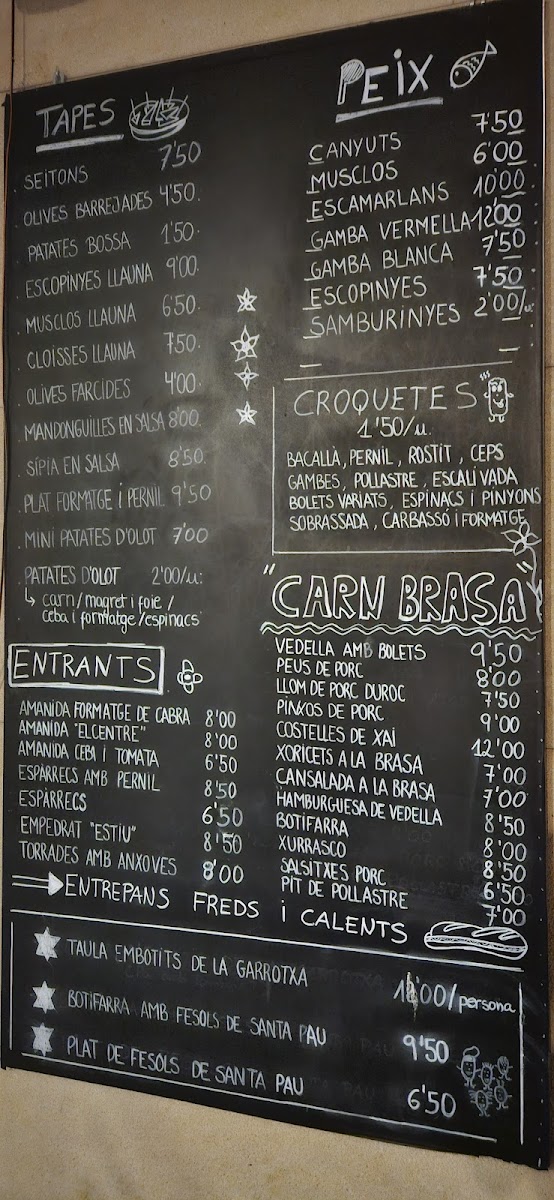 TAPES
SEITONS 7'50
OLIVES BARREJADES 4'50.
PATATES BOSSA 1'50.
ESCOPINYES LLAUNA 9'00.
MUSCLOS LLAUNA 6'50.
CLOÏSSES LLAUNA 7'50.
OLIVES FARCIDES 4'00.
MANDONGUILLES EN SALSA 8'00.
SÍPIA EN SALSA 8'50.
PLAT FORMATGE i PERNIL 9'50
MINI PATATES D'OLOT 7'00
PATATES D'OLOT 2'00/u:
carn/magret i foie/
ceba i formatge/espinacs
ENTRANTS
AMANIDA FORMATGE DE CABRA 8'00
AMANIDA "ELCENTRE" 8'00
AMANIDA CEBA I TOMATA 6'50
ESPÀRRECS AMB PERNIL 8'50
ESPÀRRECS 6'50
EMPEDRAT "ESTIU" 8'50
TORRADES AMB ANXOVES 8'00
PEIX
CANYUTS 7'50
MUSCLOS 6'00
ESCAMARLANS 10'00
GAMBA VERMELLA 12'00
GAMBA BLANCA 7'50
ESCOPINYES 7'50
SAMBURINYES 2'00/u.
CROQUETES
1'50/u.
BACALLÀ, PERNIL, ROSTIT, CEPS
GAMBES, POLLASTRE, ESCALIVADA
BOLETS VARIATS, ESPINACS I PINYONS
SOBRASSADA, CARBASSÓ i FORMATGE
"CARN BRASA"
VEDELLA AMB BOLETS 9'50
PEUS DE PORC 8'00
LLOM DE PORC DUROC 7'50
PINXOS DE PORC 9'00
COSTELLES DE XAI 12'00
XORICETS A LA BRASA 7'00
CANSALADA A LA BRASA 7'00
HAMBURGUESA DE VEDELLA 8'50
BOTIFARRA 8'00
XURRASCO 8'50
SALSITXES PORC 6'50
PIT DE POLLASTRE 7'00
ENTREPANS FREDS i CALENTS
TAULA EMBOTITS DE LA GARROTXA /persona
BOTIFARRA AMB FESOLS DE SANTA PAU 9'50
PLAT DE FESOLS DE SANTA PAU 6'50